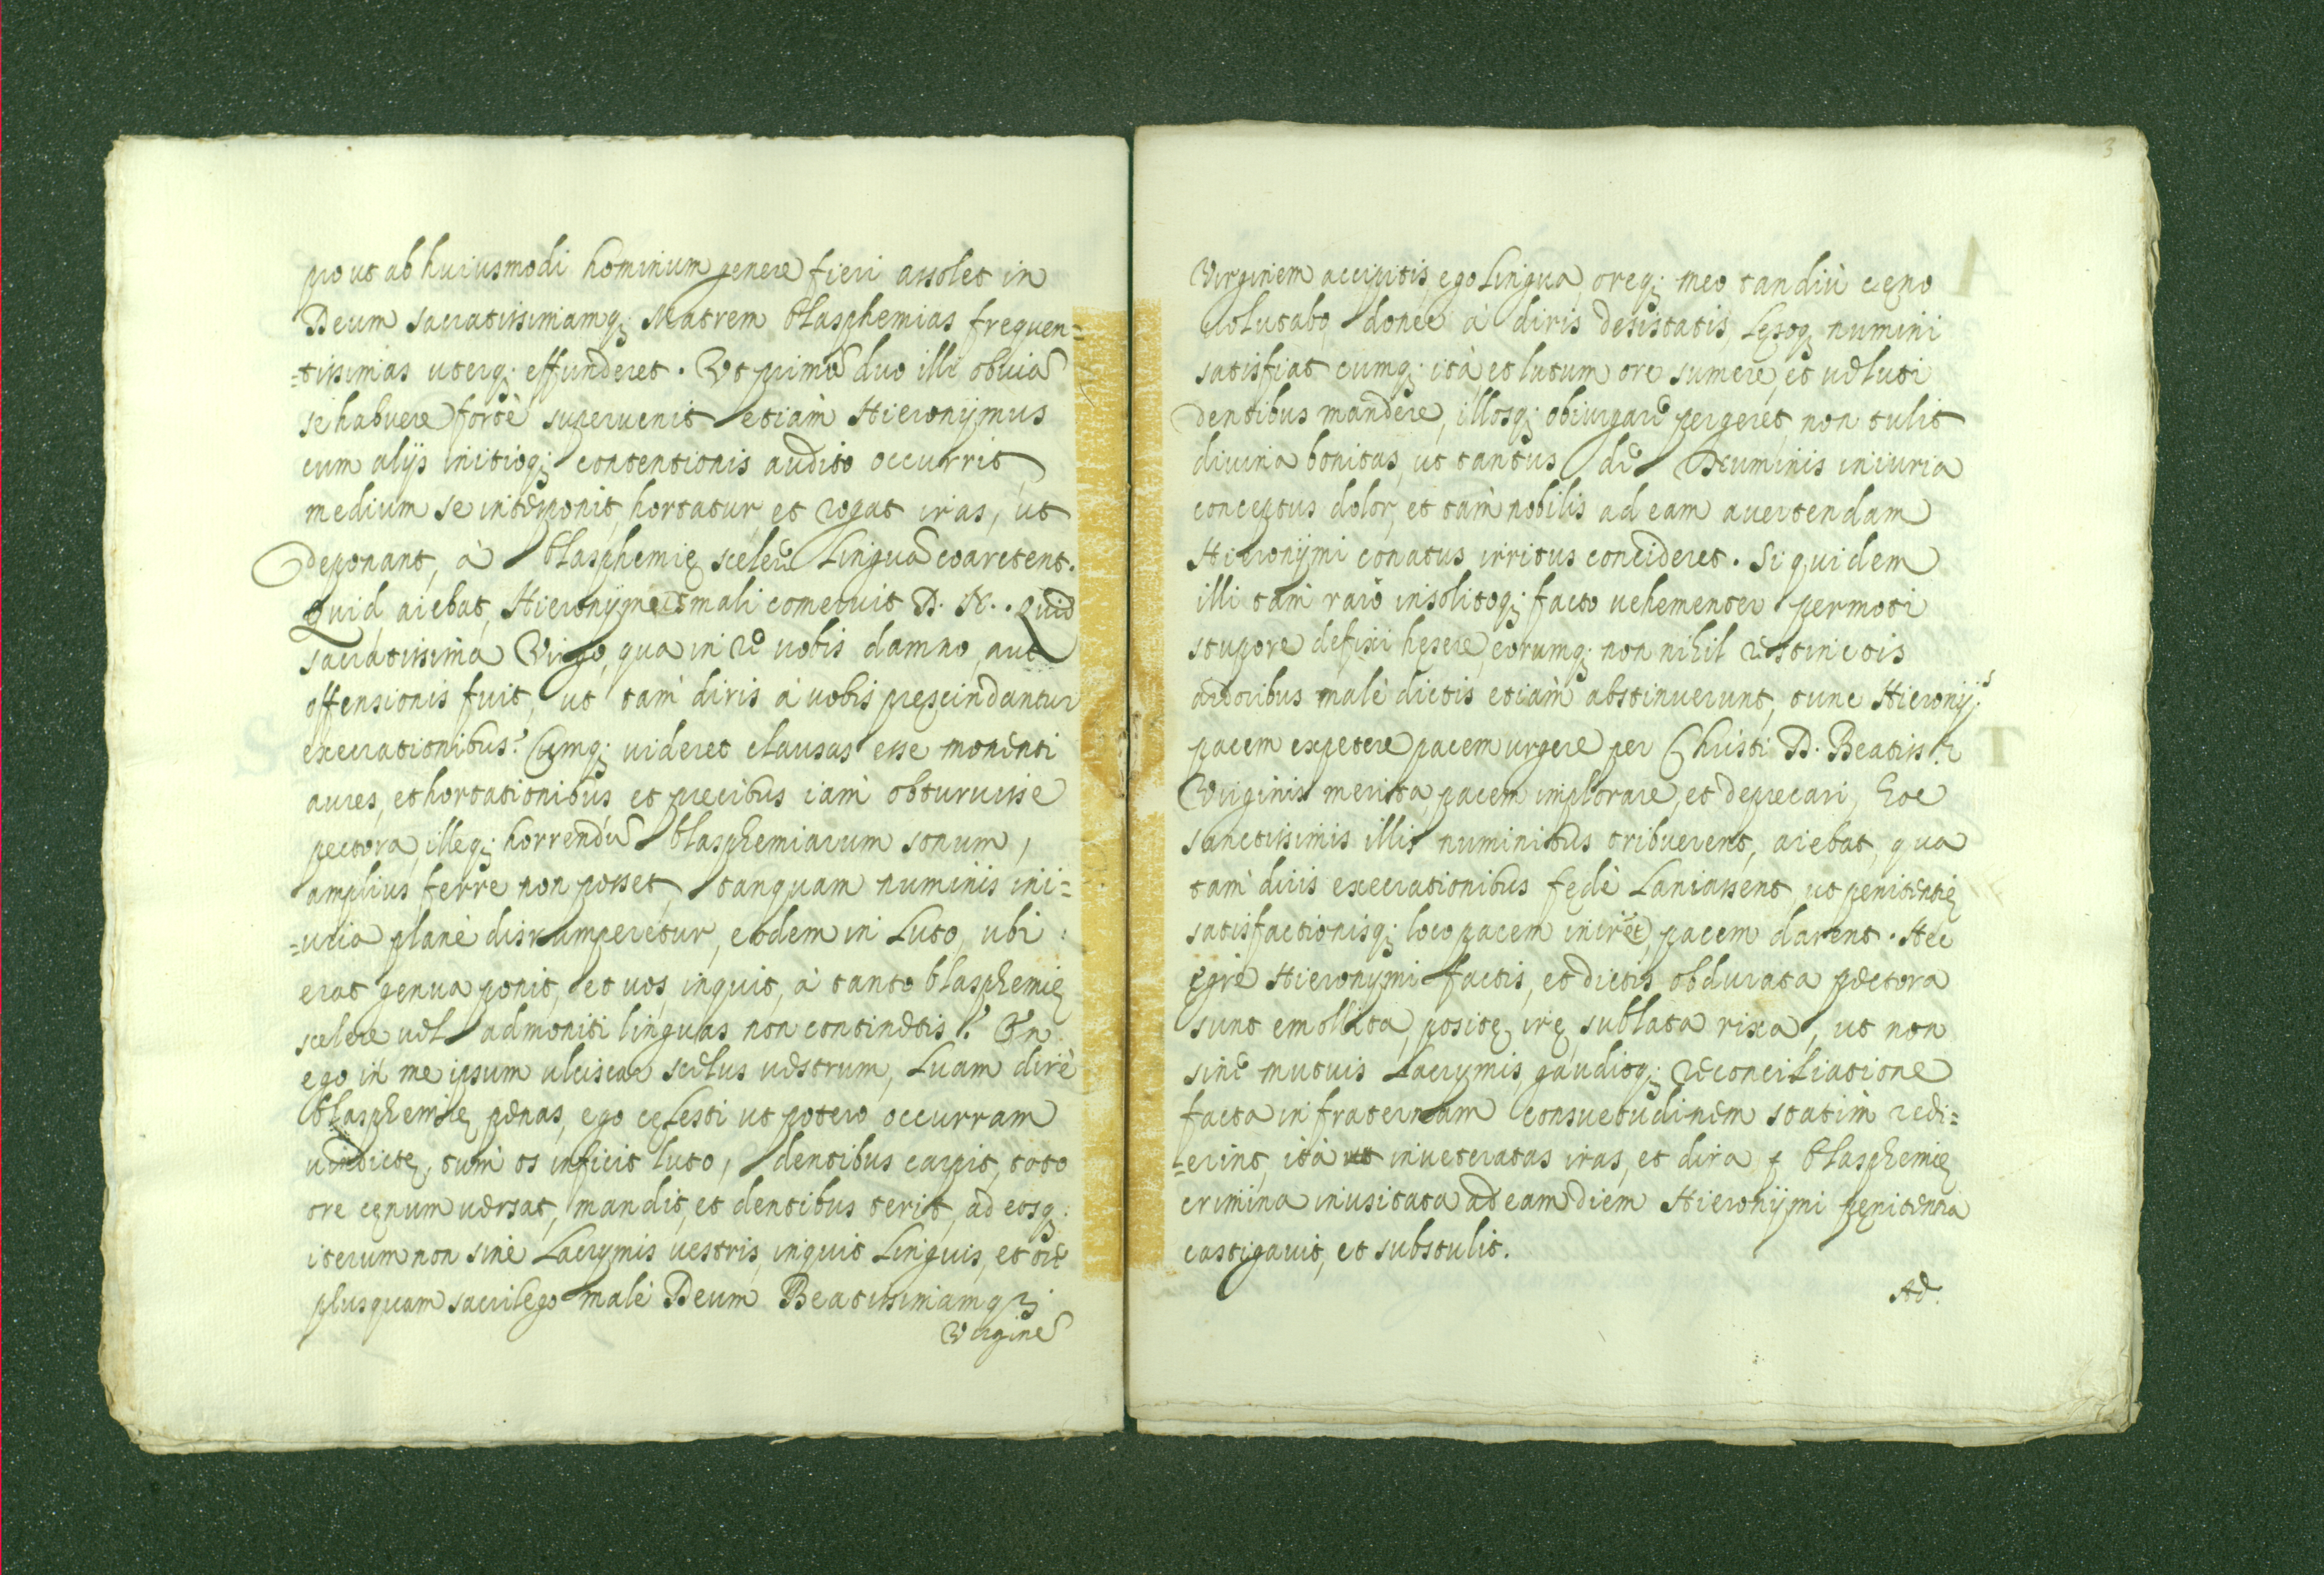 prout ab huiusmodi hominum genere fieri assolet in
Deum sacratissimamq; Matrem blasphemias frequen=
=tissimas uterq; effunderet. Vt primũ duo illi obuiã
se habuere fortè superuenit etiàm Hieronÿmus
cum alijs initioq; contentionis audito occurrit,
medium se interponit, hortatur, et rogat iras, ut
deponant, à blasphemię scelere linguã coarctent.
Quid aiebat, Hieronÿmus mali comeruit D. N.. Quid
sacratissima Virgo, qua in re uobis damno, aut
offensionis fuit, ut tam diris à uobis prescindantur
execrationibus? Cumq; uideret clausas esse monenti
aures, et hortationibus et precibus iàm obturuisse
pectora, illeq; horrendũ blasphemiarum sonum,
amplius ferre non posset, tanquam numinis ini=
=uria planè disrumperetur, eodem in luto, ubi
erat genua ponit, et uos inquit, à tanto blasphemię
scelere uel admoniti linguas non continetis? En
ego in me ipsum ulciscar scelus uestrum, luam dirè
blasphemię penas, ego cęlesti ut potero occurram
uindictę, tum os inficit luto, dentibus carpit, toto
ore cęnum uersat, mandit, et dentibus terit, ad eosq;
iterum non sine lacrymis uestris, inquit linguis, et ore
plusquam sacrilego malè Deum Beatissimamq;
Virginẽ
3
Virginem accipitis, ego lingua, oreq; meo tandiù cęno
uolutabo donec à diris desistatis, lęsoq; numini
satisfiat cumq; ità et lutum ore sumere, et ueluti
dentibus mandere, illosq; obiurgare pergeret, non tulit
diuina bonitas, ut tantus de Numinis iniuria
conceptus dolor, et tàm nobilis ad eam auertendam
Hieronÿmi conatus irritus concideret. Si quidem
illi tàm raro insolitoq; facto uehementer permoti
stupore defixi hęsere, eorumq; non nihil restinctis
ardoribus malè dictis etiàm abstinuerunt, tunc Hieronÿ.s
pacem expetere pacem urgere per Christi D. Beatiss.ę
Virginis merita pacem implorare, et deprecari, hoc
sanctissimis illis numinibus tribuerent, aiebat, qua
tàm diris execrationibus fędè laniassent ut penitentię
satisfactionisq; loco pacem iniret, pacem darent. Hec
ęgre Hieronÿmi factis, et dictis obdurata pectora
sunt emollita, positę irę, sublata rixa, ut non
sine mutuis lacrymis, gaudioq; reconciliatione
facta in fraternam consuetudinem statìm redi=
=erint, ità inueteratas iras, et dira blasphemię
crimina inusitata ad eam diem Hieronÿmi pęnitentia
castigauit, et substulit.
Ad.